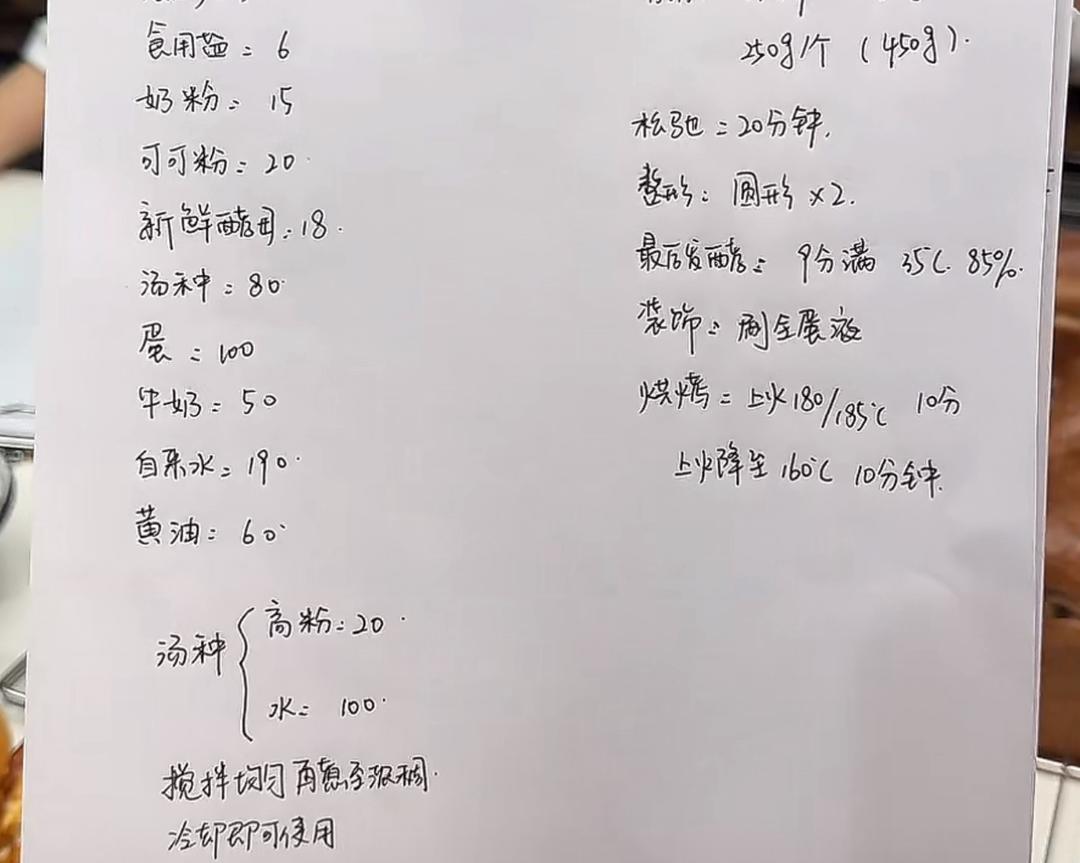 食用盐：6
奶粉：15
可可粉：20
新鲜酵母：18
汤种：80
蛋：100
牛奶：50
自来水：190
黄油：60
汤种
高粉：20
水：100
搅拌均匀再煮至浓稠
冷却即可使用
250g/个（450g）
松弛：20分钟
整形：圆形×2
最后发酵：9分满 35℃ 85%
装饰：刷全蛋液
烘烤：上火180/185℃ 10分
上火降至160℃ 10分钟